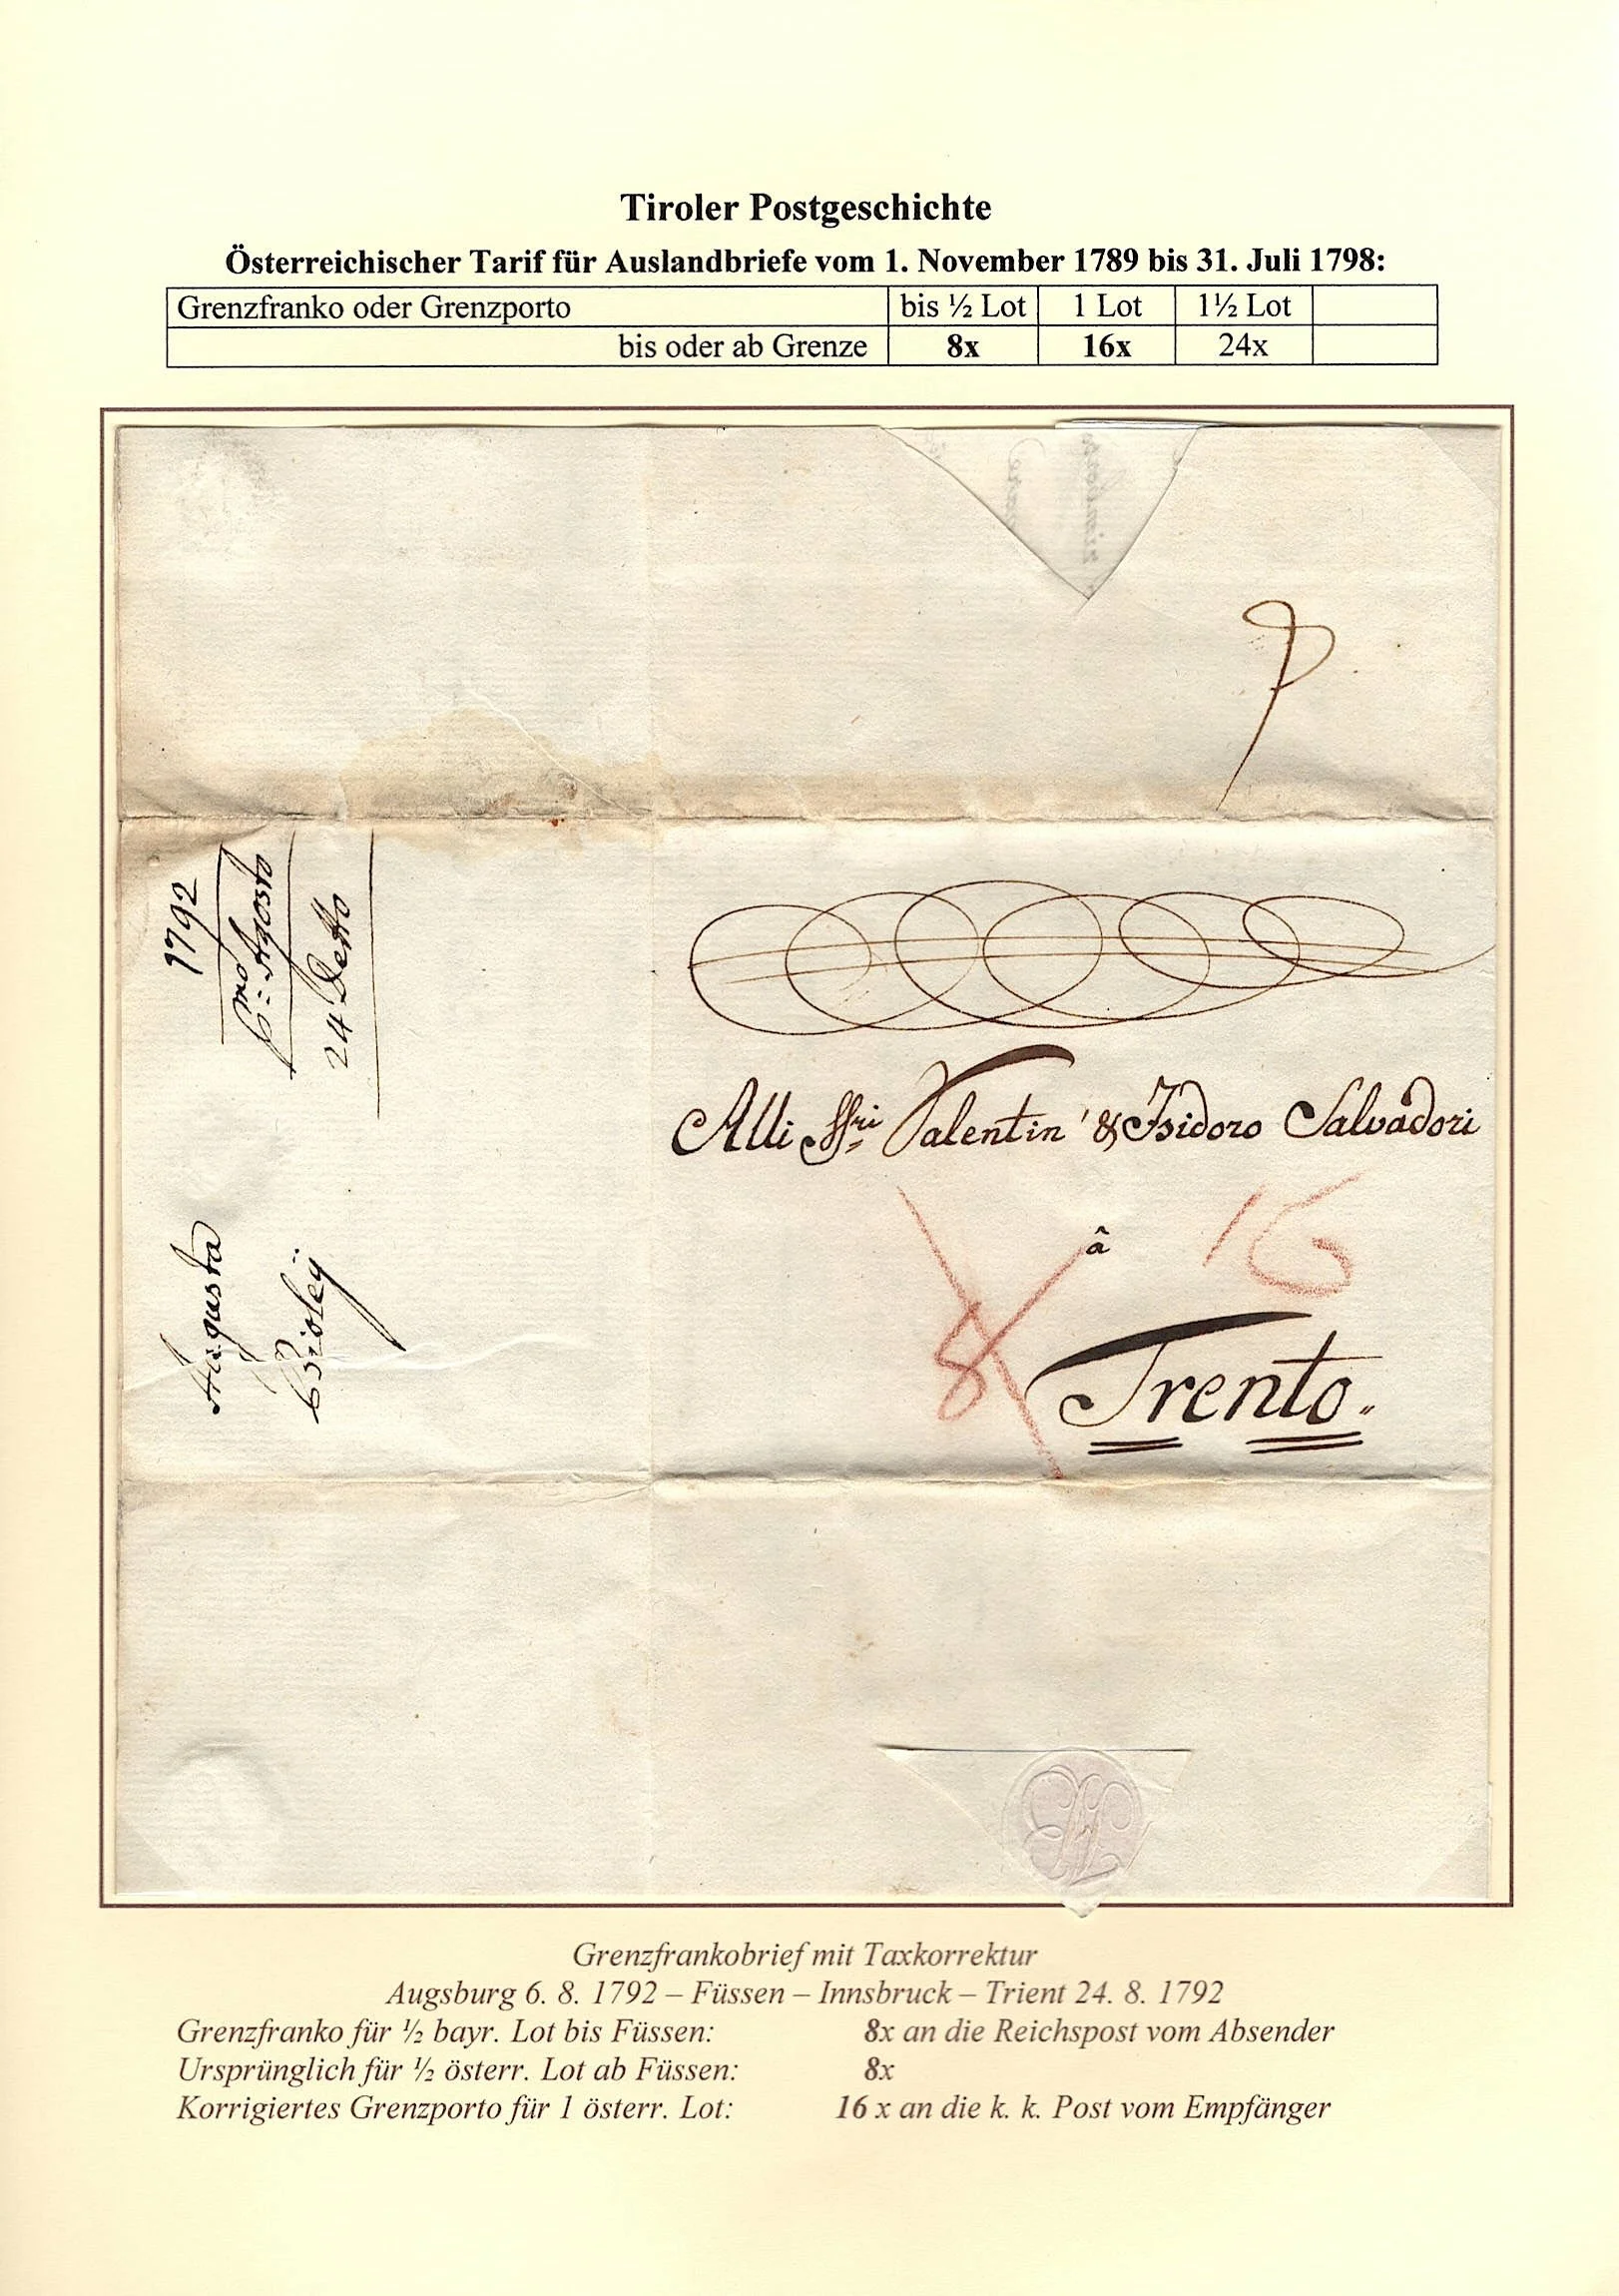 Tiroler Postgeschichte
Österreichischer Tarif für Auslandbriefe vom 1. November 1789 bis 31. Juli 1798:
Grenzfranko oder Grenzporto bis ½ Lot 1 Lot 1½ Lot
bis oder ab Grenze 8x 16x 24x
1792
6:mo Agosto
24 Detto
Augusta
Bioleÿ
Alli SSri Valentin' & Isidoro Salvadori
â
16
8
Trento.
Grenzfrankobrief mit Taxkorrektur
Augsburg 6. 8. 1792 – Füssen – Innsbruck – Trient 24. 8. 1792
Grenzfranko für ½ bayr. Lot bis Füssen: 8x an die Reichspost vom Absender
Ursprünglich für ½ österr. Lot ab Füssen: 8x
Korrigiertes Grenzporto für 1 österr. Lot: 16 x an die k. k. Post vom Empfänger